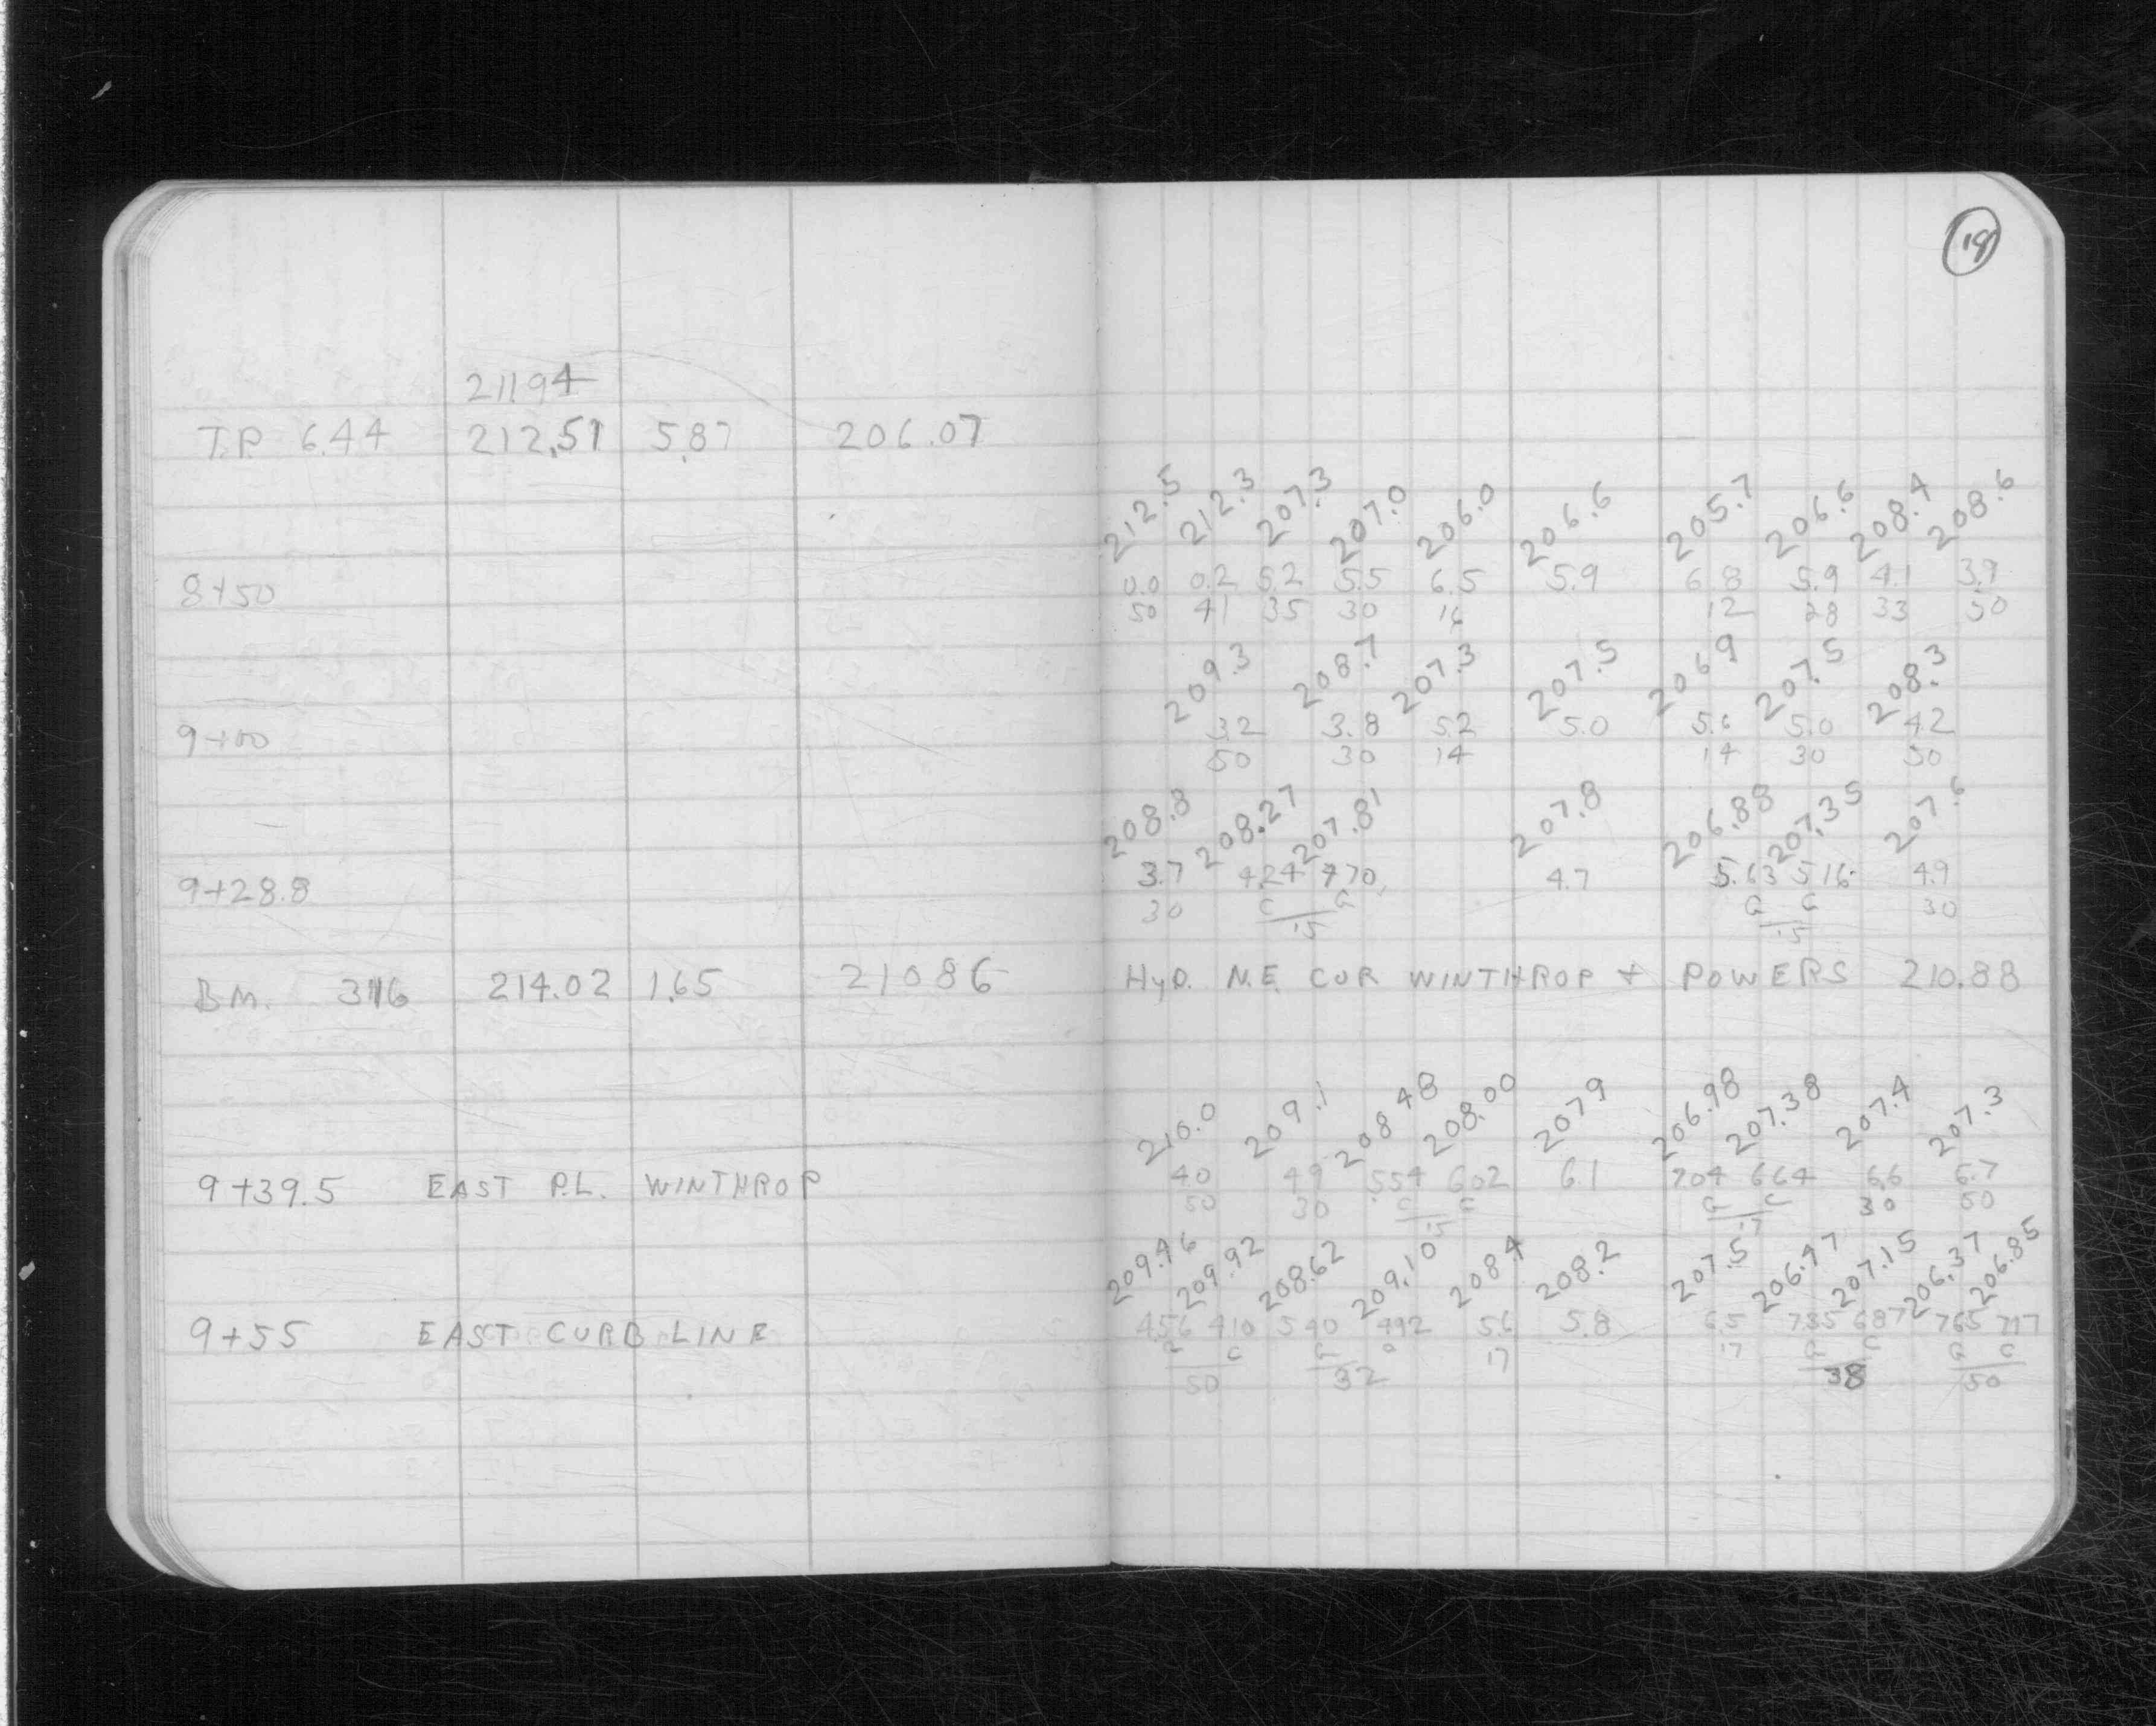 19
21194
T.P. 6.44 212.51 5.87 206.07
212.5 212.3 207.3 207.0 206.0 206.6 205.7 206.6 208.4 208.6
8+50 0.0 0.2 5.2 5.5 6.5 5.9 6.8 5.9 4.1 3.9
50 41 35 30 16 12 28 33 50
209.3 208.7 207.3 207.5 2069 207.5 208.3
9+00 3.2 3.8 5.2 5.0 5.6 5.0 4.2
50 30 14 14 30 50
208.8 208.27 207.81 207.8 206.88 207.35 207.6
9+28.8 3.7 4.24 470 4.7 5.63 516 4.9
30 C G G C 30
15 15
B.M. 316 214.02 1.65 21086 HYD. N.E. COR WINTHROP + POWERS 210.88
210.0 209.1 208 48 208.00 2079 206.98 207.38 207.4 207.3
9+39.5 EAST P.L. WINTHROP 4.0 49 554 602 6.1 704 664 6.6 6.7
50 30 C G G C 30 50
15 17
209.46 209.92 208.62 209.10 208.4 208.2 207.5 206.47 207.15 206.37 206.85
9+55 EAST CURB LINE 456 410 540 492 5.6 5.8 6.5 735 687 765 717
G C G C 17 17 G C G C
50 32 38 50